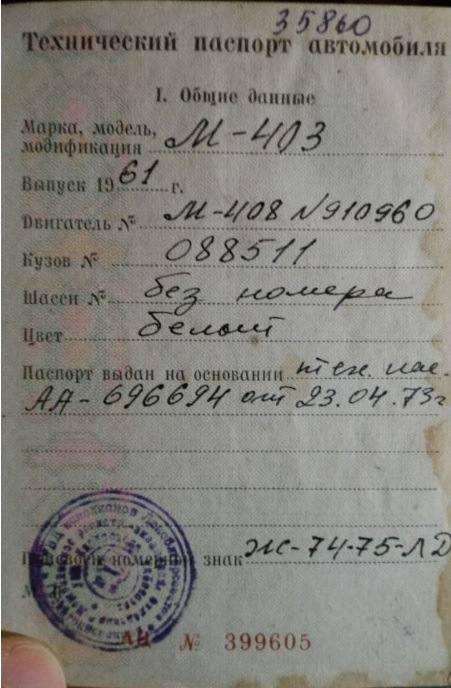 35860
Технический паспорт автомобиля
I. Общие данные
Марка, модель,
модификация М-403
Выпуск 1961 г.
Двигатель № М-408 №910960
Кузов № 088511
Шасси № без номера
Цвет белый
Паспорт выдан на основании тех. пас.
АА-696694 от 23.04.73г
номерной знак Ж-74-75-ЛД
АН № 399605